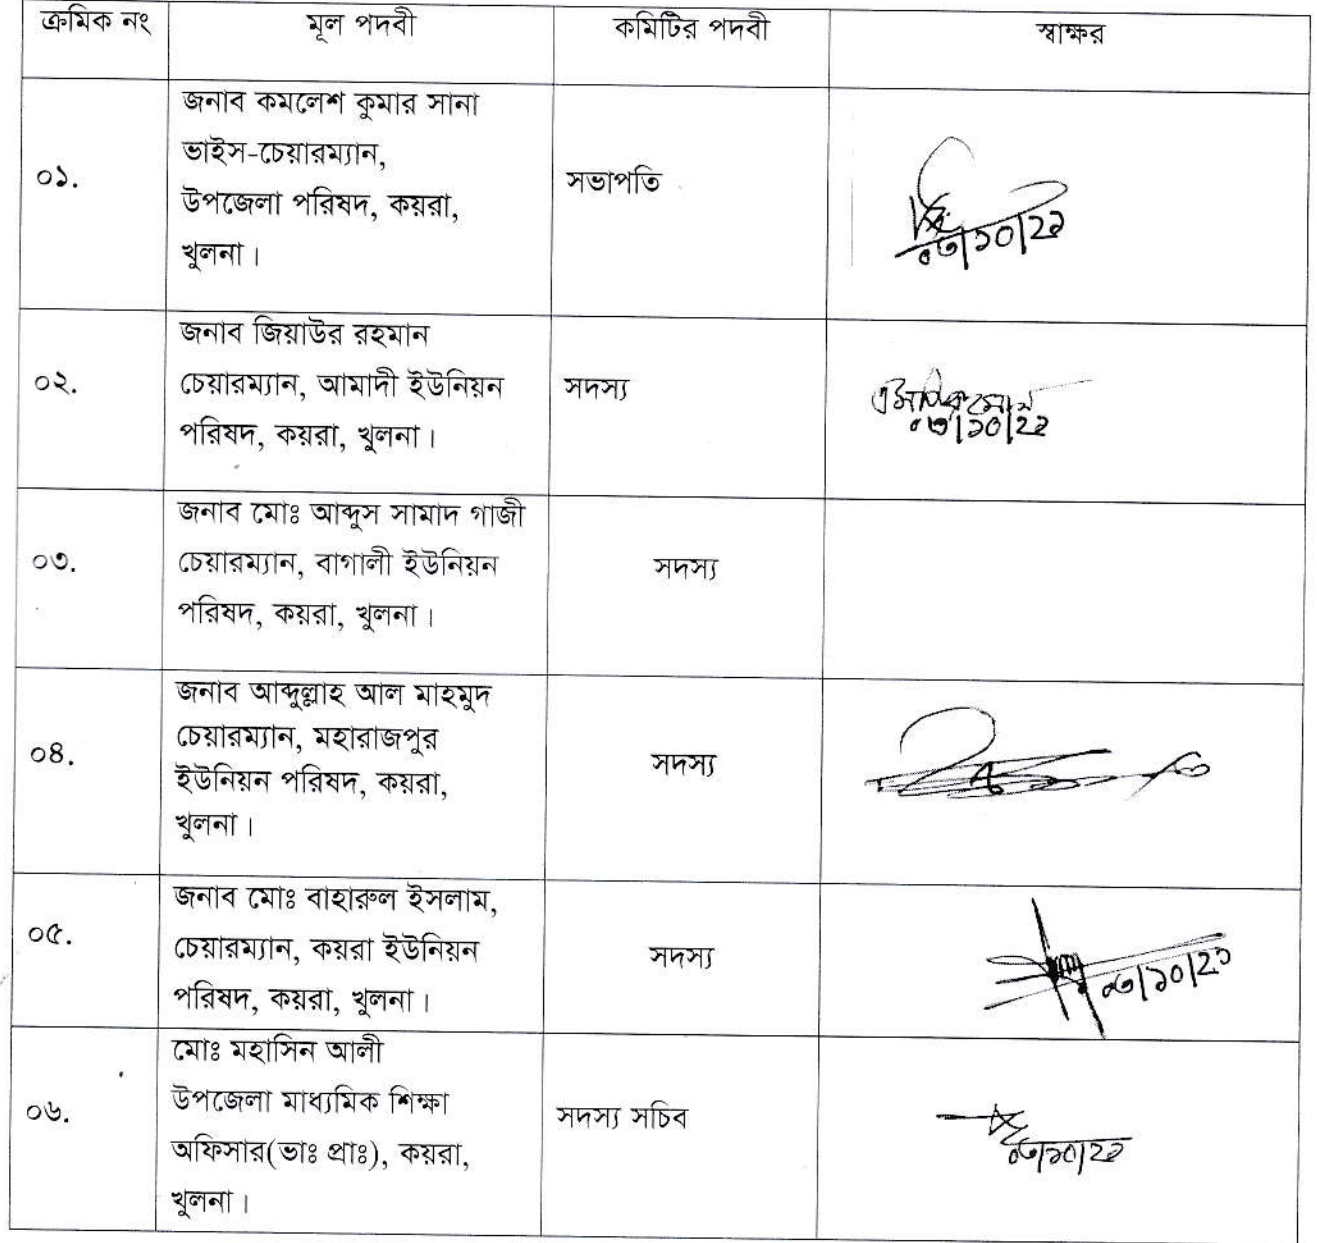 ক্রমিক নং মূল পদবী কমিটির পদবী স্বাক্ষর
০১.
জনাব কমলেশ কুমার সানা
ভাইস-চেয়ারম্যান,
উপজেলা পরিষদ, কয়রা,
খুলনা।
সভাপতি
০৩|১০|২১
০২.
জনাব জিয়াউর রহমান
চেয়ারম্যান, আমাদী ইউনিয়ন
পরিষদ, কয়রা, খুলনা।
সদস্য
০৩|১০|২১
০৩.
জনাব মোঃ আব্দুস সামাদ গাজী
চেয়ারম্যান, বাগালী ইউনিয়ন
পরিষদ, কয়রা, খুলনা।
সদস্য
০৪.
জনাব আব্দুল্লাহ আল মাহমুদ
চেয়ারম্যান, মহারাজপুর
ইউনিয়ন পরিষদ, কয়রা,
খুলনা।
সদস্য
০৫.
জনাব মোঃ বাহারুল ইসলাম,
চেয়ারম্যান, কয়রা ইউনিয়ন
পরিষদ, কয়রা, খুলনা।
সদস্য
০৩|১০|২১
০৬.
মোঃ মহাসিন আলী
উপজেলা মাধ্যমিক শিক্ষা
অফিসার(ভাঃ প্রাঃ), কয়রা,
খুলনা।
সদস্য সচিব
০৩|১০|২১